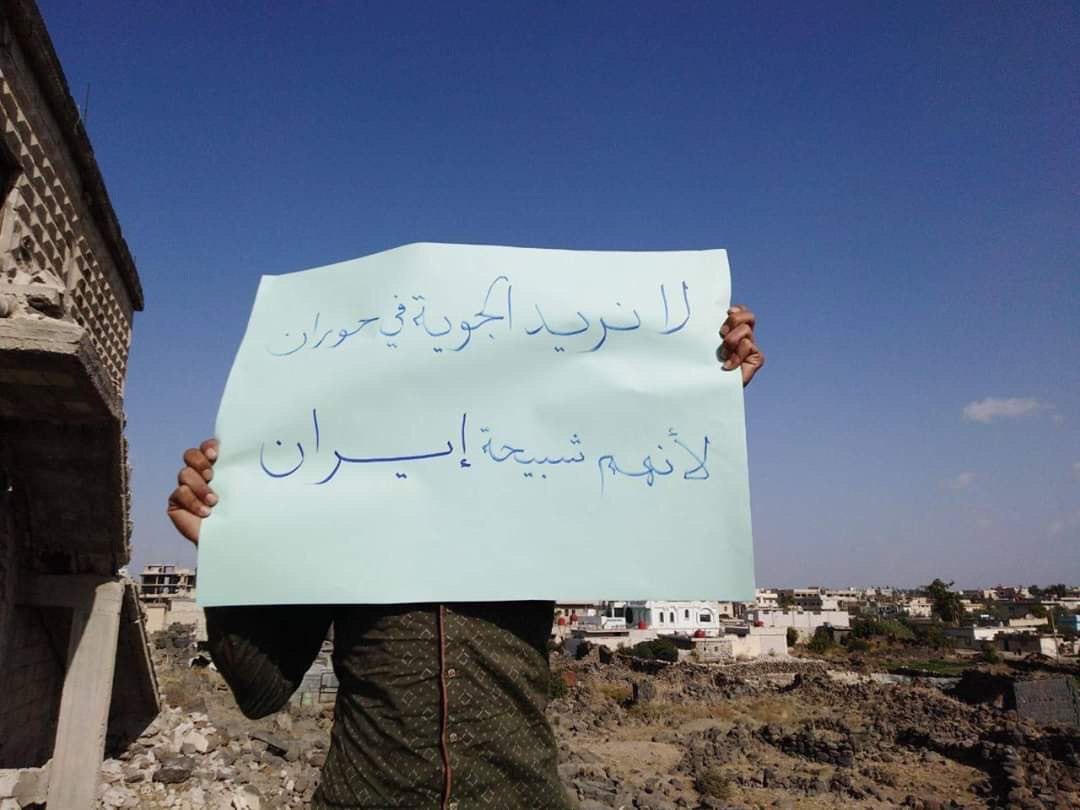 لا نريد الجوية في حوران
لأنهم شبيحة إيران